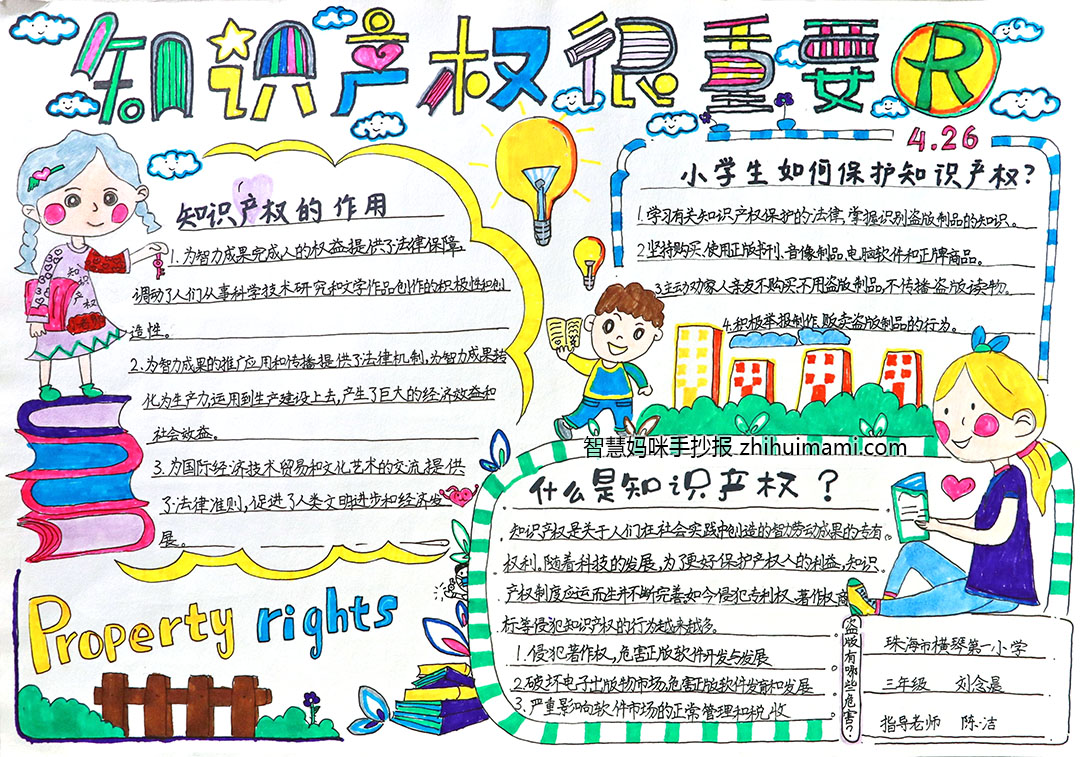 知识产权很重要
R
4.26
知识产权的作用
1.为智力成果完成人的权益提供了法律保障,
调动了人们从事科学技术研究和文学作品创作的积极性和创
造性。
2.为智力成果的推广应用和传播提供了法律机制,为智力成果转
化为生产力,运用到生产建设上去,产生了巨大的经济效益和
社会效益。
3.为国际经济技术贸易和文化艺术的交流提供
了法律准则,促进了人类文明进步和经济发
展。
知识
产权
小学生如何保护知识产权?
1.学习有关知识产权保护的法律,掌握识别盗版制品的知识。
2.坚持购买、使用正版书刊、音像制品、电脑软件和正牌商品。
3.主动劝家人亲友不购买不用盗版制品,不传播盗版读物。
4.积极举报制作、贩卖盗版制品的行为。
智慧妈咪手抄报 zhihuimami.com
什么是知识产权?
知识产权是关于人们在社会实践中创造的智力劳动成果的专有
权利。随着科技的发展,为了更好保护产权人的利益,知识
产权制度应运而生并不断完善,如今侵犯专利权、著作权、商
标等侵犯知识产权的行为越来越多。
1.侵犯著作权,危害正版软件开发与发展
2.破坏电子出版物市场,危害正版软件发育和发展
3.严重影响软件市场的正常管理和税收
盗版有哪些危害?
Property rights
珠海市横琴第一小学
三年级 刘念晨
指导老师 陈洁